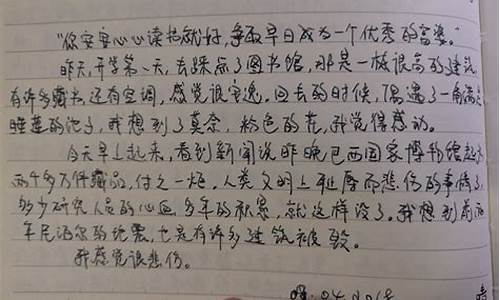 "你安安心心读书就好,争取早日成为一个优秀的富婆。"
昨天,开学第一天,去踩点了图书馆,那是一栋很高的建筑,
有许多藏书,还有空调,感觉很安逸。回去的时候,偶遇了一角满是
睡莲的池子,我想到了莫奈,粉色的花,我觉得感动。
今天早上起来,看到新闻说昨晚巴西国家博物馆起火
两千多万件藏品,付之一炬,人类文明上耻辱而悲伤的事情,
多少研究人员的心血多年的积累,就这样没了。我想到前两
年尼泊尔的地震,也是有许多建筑被毁。
我感觉很悲伤。
04 2018